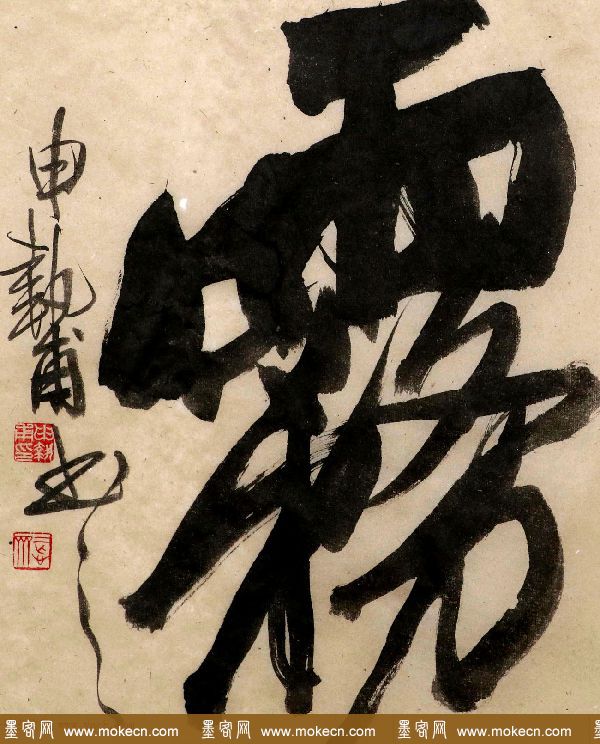 霧
申執甫书
墨客网 www.mokecn.com 墨客网 www.mokecn.com 墨客网 www.mokecn.com